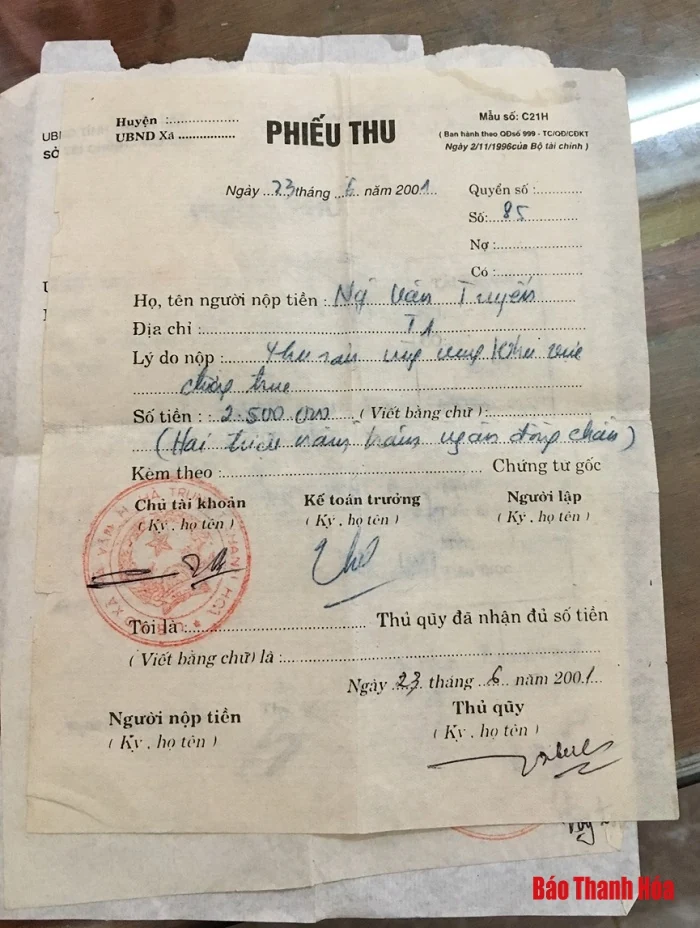 Huyện :..................
UBND Xã ................
PHIẾU THU
Mẫu số: C21H
( Ban hành theo QĐsố 999 - TC/QĐ/CĐKT
Ngày 2/11/1996của Bộ tài chính )
Ngày ...23 tháng ...6... năm 2001...
Quyển số :..........
Số: 85
Nợ :.............
Có :.............
Họ, tên người nộp tiền : Ngô Văn Truyến
Địa chỉ : T1
Lý do nộp :
Số tiền : 2.500.000 ( Viết bằng chữ ) :
(Hai triệu năm trăm ngàn đồng chẵn)
Kèm theo :.......................................... Chứng tư gốc
Chủ tài khoản
( Ky , họ tên )
Kế toán trưởng
( Ky , họ tên )
Người lập
( Ky , họ tên )
Tôi là :................................ Thủ qũy đã nhận đủ số tiền
( Viết bằng chữ) là :..................................................
Ngày 23 tháng ..6... năm 2001
Người nộp tiền
( Ky , họ tên )
Thủ qũy
( Ky , họ tên )
Báo Thanh Hóa